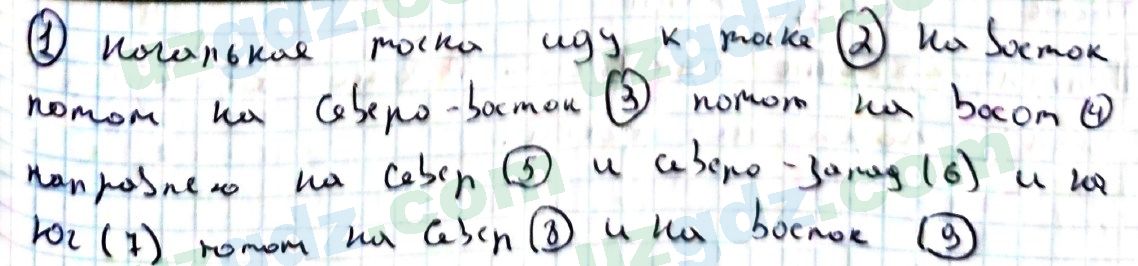 ① ночальная точка иду к точке ② на восток
потом на северо-восток ③ потом на восот ④
направлею на север ⑤ и северо-запад (6) и на
юг (7) потом на север ⑧ и на восток ⑨